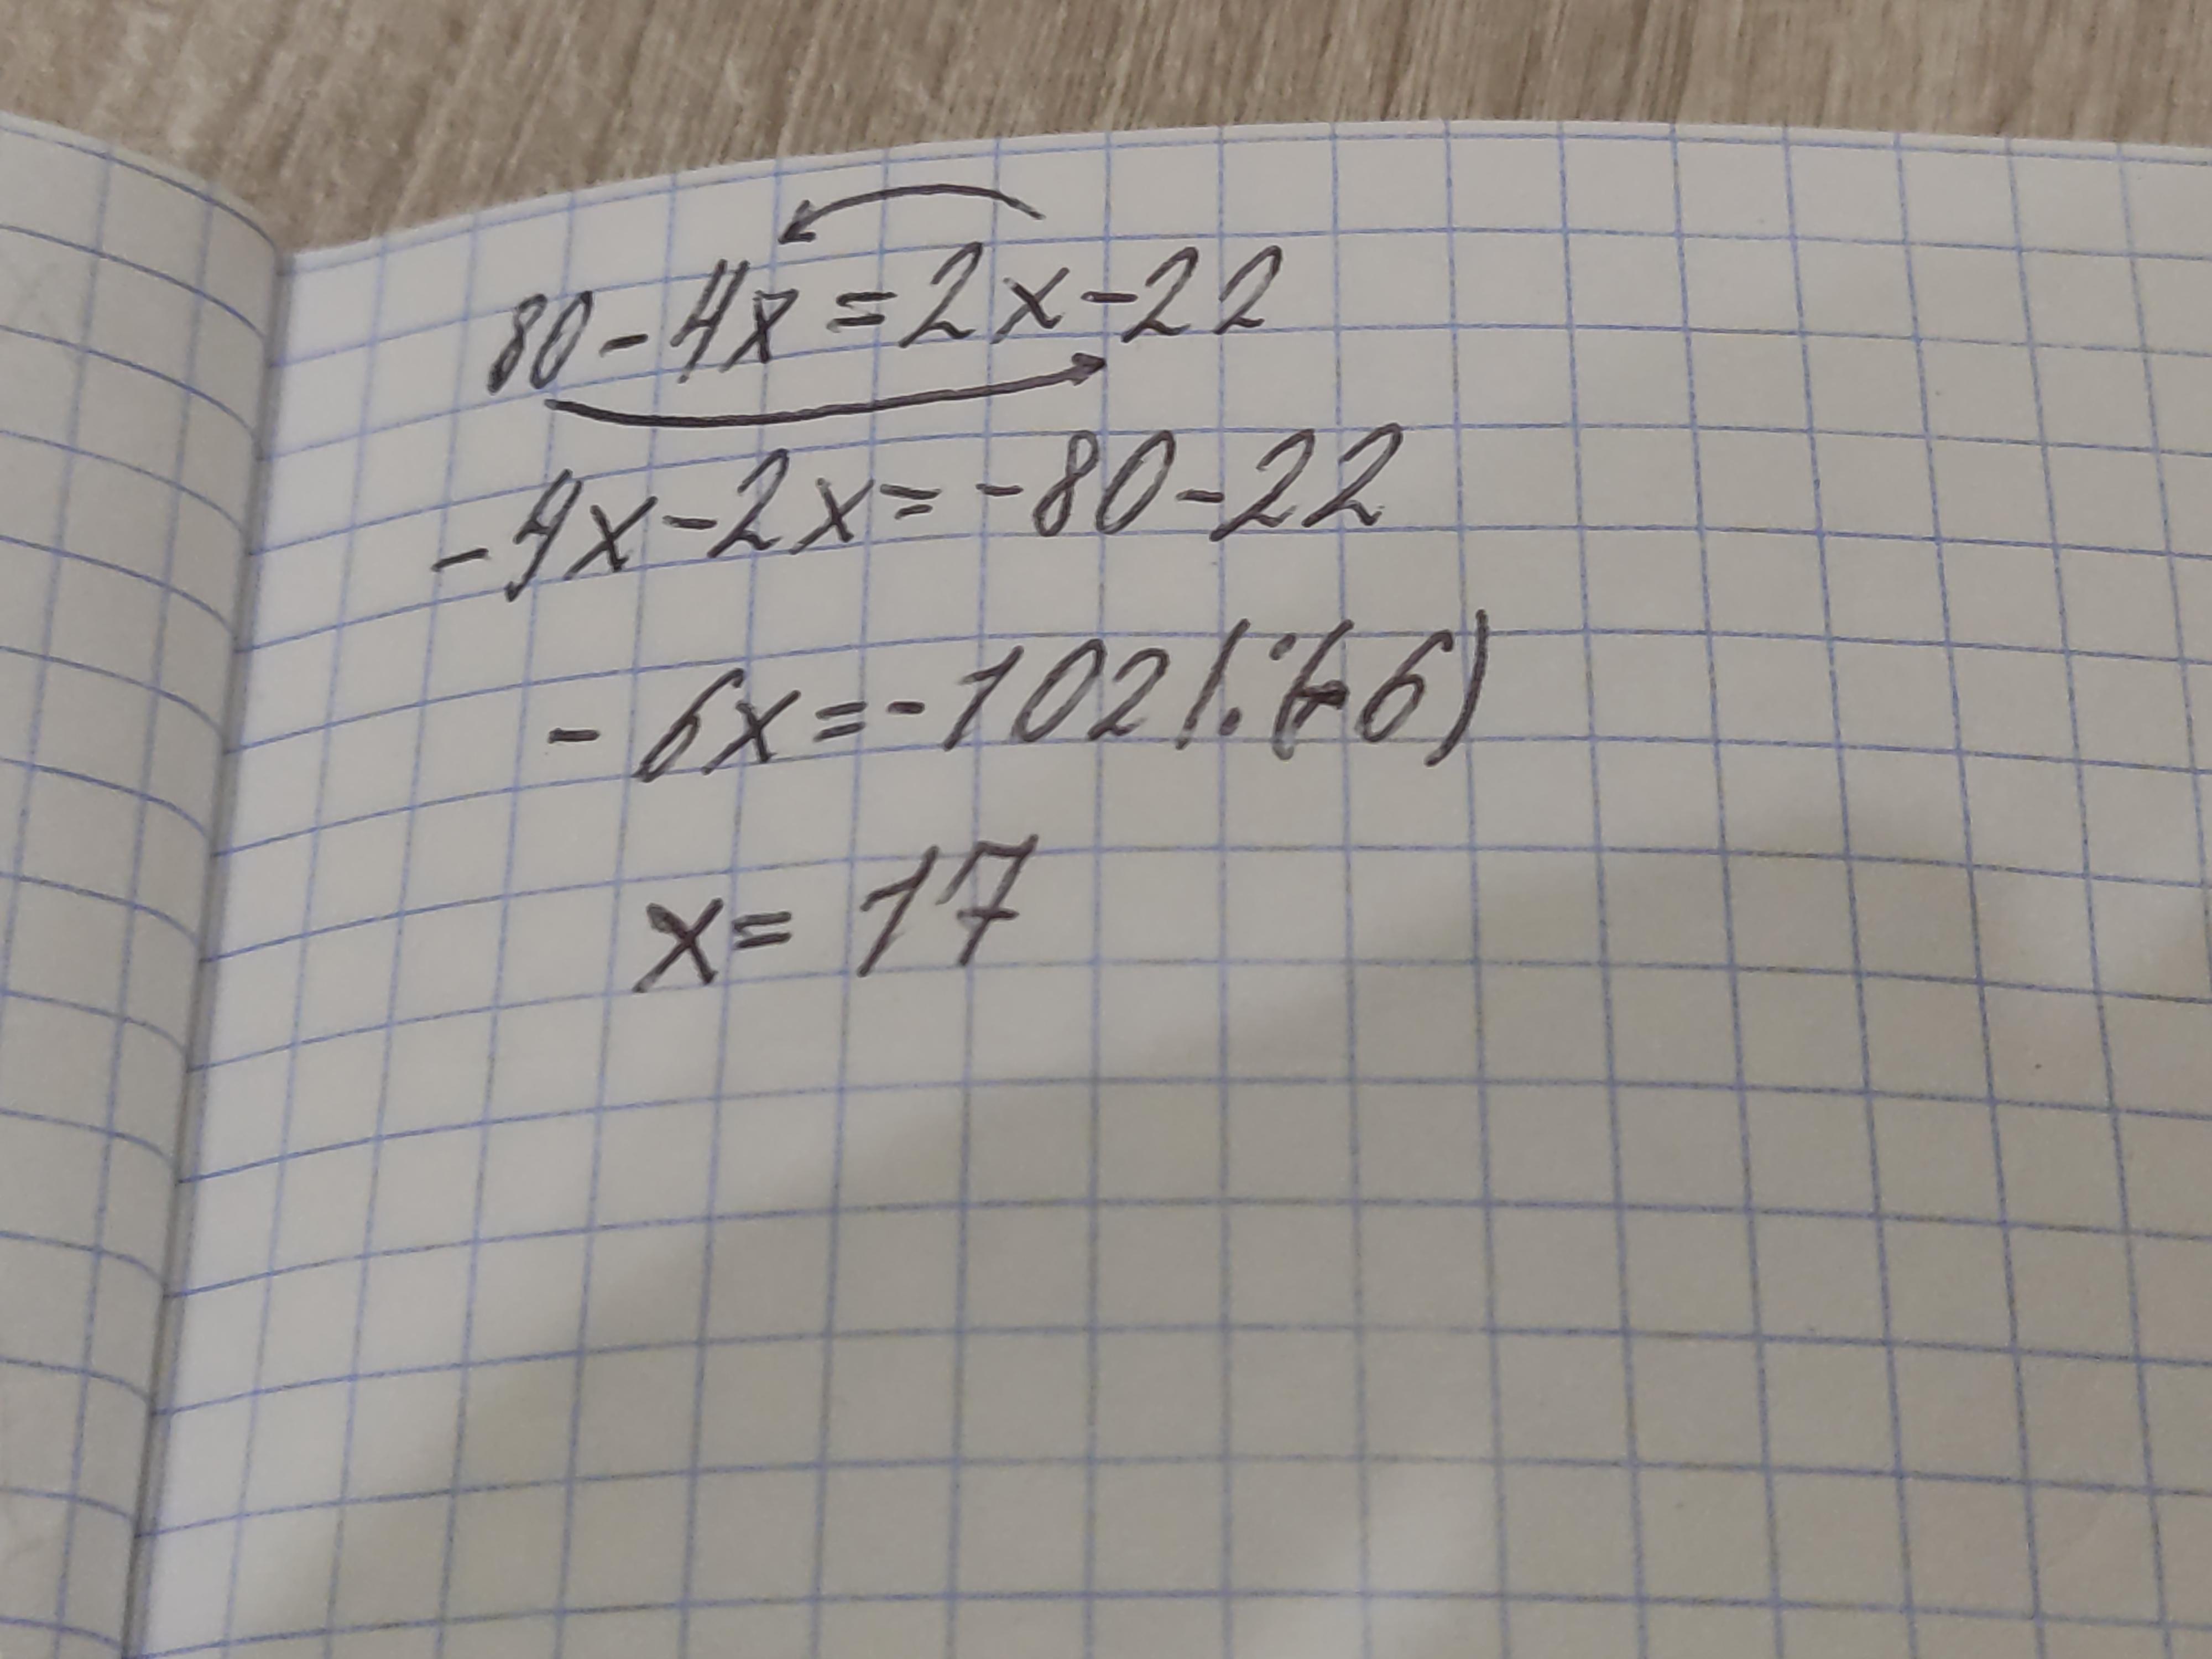 80-4x=2x-22
-4x-2x=-80-22
-6x=-102|:(-6)
x=17